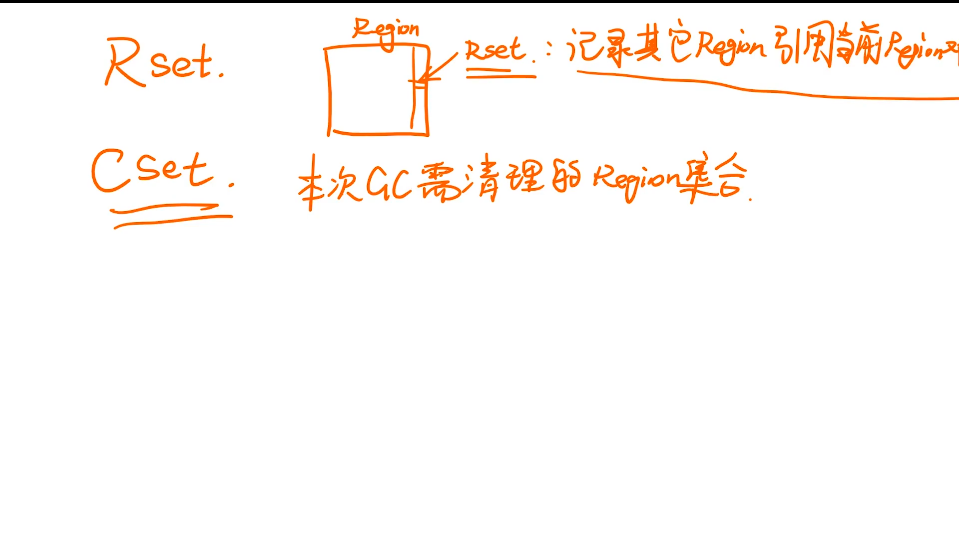 Region
Rset. Rset.：记录其它Region引用当前Region
Cset. 本次GC需清理的Region集合.